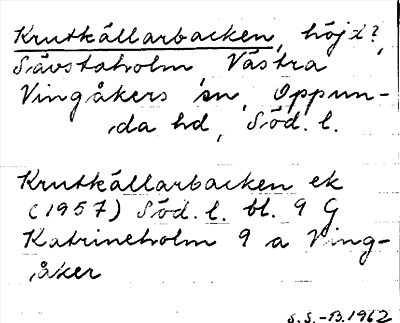 Krutkällarbacken, höjd?,
Sävstaholm Västra
Vingåkers sn, Oppun-
da hd, Söd. l.
Krutkällarbacken ek
(1957) Söd. l. bl. 9 G
Katrineholm 9 a Ving-
åker
S.S.-B. 1962